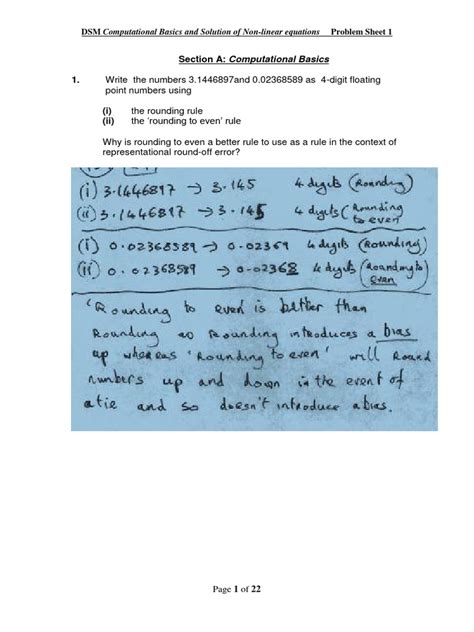 DSM Computational Basics and Solution of Non-linear equations Problem Sheet 1
Section A: Computational Basics
1. Write the numbers 3.1446897and 0.02368589 as 4-digit floating
point numbers using
(i) the rounding rule
(ii) the 'rounding to even' rule
Why is rounding to even a better rule to use as a rule in the context of
representational round-off error?
(i) 3.1446897 → 3.145 4 digits (Rounding)
(ii) 3.1446897 → 3.145 4 digits (Rounding
to even)
(i) 0.02368589 → 0.02369 4 digits (Rounding)
(ii) 0.02368589 → 0.02368 4 digits (Roanding to)
even
'Rounding to even is better than
Rounding as Rounding introduces a bias
up whereas 'Rounding to even' will Round
numbers up and down in the event of
a tie and so doesn't introduce a bias.
Page 1 of 22